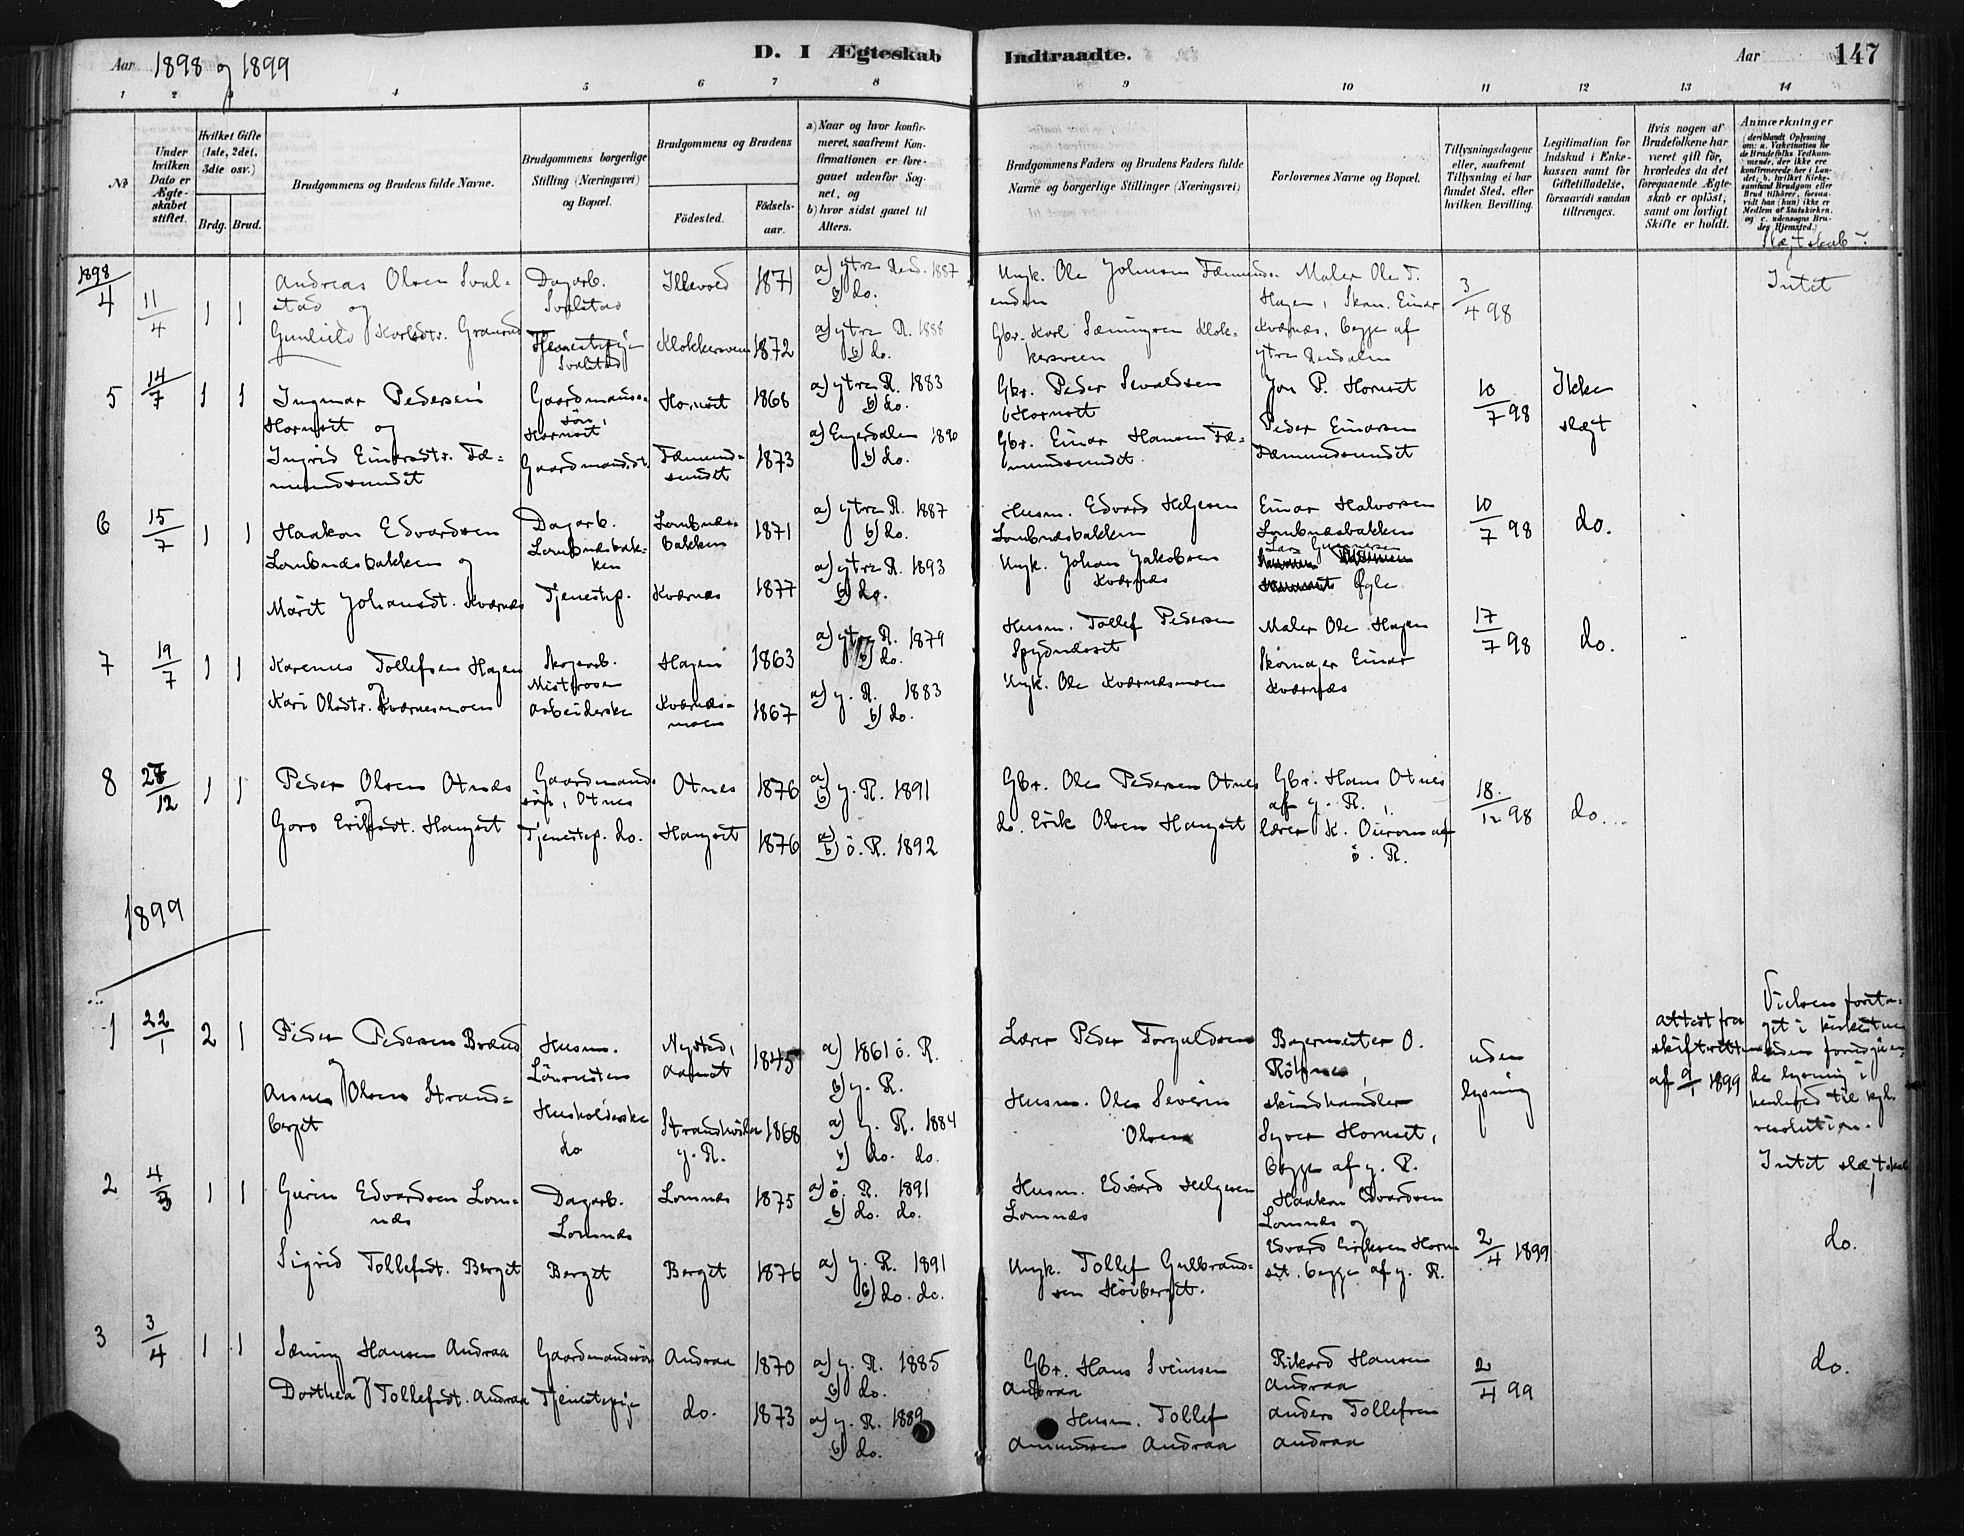 Aar 1898 og 1899
D. I Ægteskab Indtraadte.
Aar
147
1 2 3 4 5 6 7 8 9 10 11 12 13 14
No
Under hvilken Dato er Ægteskabet stiftet.
Hvilket Gifte (1ste, 2det, 3die osv.)
Brdg. Brud.
Brudgommens og Brudens fulde Navne.
Brudgommens borgerlige Stilling (Næringsvei) og Bopæl.
Brudgommens og Brudens
Fødested.
Fødselsaar.
a) Naar og hvor konfirmeret, saafremt Konfirmationen er foregaaet udenfor Sognet, og
b) hvor sidst gaaet til Alters.
Brudgommens Faders og Brudens Faders fulde Navne og borgerlige Stillinger (Næringsvei)
Forlovernes Navne og Bopæl.
Tillysningsdagene eller, saafremt Tillysning ei har fundet Sted, efter hvilken Bevilling.
Legitimation for Indskud i Enkekassen samt for Giftetilladelse, forsaavidt saadan tiltrænges.
Hvis nogen af Brudefolkene har været gift før, hvorledes da det foregaaende Ægteskab er opløst, samt om lovligt Skifte er holdt.
Anmærkninger
(deriblandt Oplysning om: a. Vakcination for de Brudefolks Vedkommende, der ikke ere konfirmerede her i Landet; b. hvilket Kirkesamfund Brudgom eller Brud tilhører, forsaavidt han (hun) ikke er Medlem af Statskirken, og c. udensogns Brudes Hjemsted.)
Slægtskab?
1898
4 11/4 1 1
Andreas Olsen Sval-
stad og
Gunhild Karlsdtr. Granrud
Dagarb.
Svalstad
Tjenestepige
Svalstad
Illevold 1871
Klokkersveen 1872
a) ytre Rend. 1887
b) do.
a) ytre R. 1888
b) do.
Ungk. Ole Johnsen Fæmunds-
enden
Gbr. Karl Sæmingsen Klok-
kersveen
Maler Ole T.
Hagen, Skom. Einar
Kværnæs, begge af
ytre Rendalen
3/4 98
Intet
5 14/7 1 1
Ingmar Pedersen
Hornset og
Ingrid Einarsdtr. Fæ-
mundsundet
Gaardmands-
søn,
Hornset
Gaardmandsdt.
Hornset 1868
Fæmund-
sundet 1873
a) ytre R. 1883
b) do.
a) Engerdalen 1890
b) do.
Gbr. Peder Sevaldsen
Hornset
Gbr. Einar Hansen Fæ-
mundsundet
Jon P. Hornset
Peder Einarsen
Fæmundsundet
10/7 98
Ikke
slægt
6 15/7 1 1
Haakon Edvardsen
Lombnæsbakken og
Marit Johansdt. Kværnæs
Dagarb.
Lombnæsbak-
ken
Tjenestep.
Lombnæs-
bakken 1871
Kværnæs 1877
a) ytre R. 1887
b) do.
a) ytre R. 1893
b) do.
Husm. Edvard Helgesen
Lombnæsbakken
Ungk. Johan Jakobsen
Kværnæs
Einar Halvorsen
Lombnæsbakken
Lars Gunnersen
Øgle
10/7 98
do.
7 19/7 1 1
Karenus Tollefsen Hagen
Kari Olsdtr. Kværnesmoen
Skogarb.
Misterosen
Arbeiderske
Hagen 1863
Kværnæs-
moen 1867
a) ytre R. 1879
b) do.
a) y. R. 1883
b) do.
Husm. Tollef Pedersen
Spydnæset
Ungk. Ole Kværnæsmoen
Maler Ole Hagen
Skomager Einar
Kværnæs
17/7 98
do.
8 28/12 1 1
Peder Olsen Otnæs
Goro Eriksdt. Hangset
Gaardmands-
søn, Otnes
Tjenestep. do.
Otnes 1876
Hangset 1876
a)
b) y. R. 1891
a)
b) ö. R. 1892
Gbr. Ole Pedersen Otnes
do. Erik Olsen Hangset
Gbr. Hans Otnes
af y. R.,
lærer K. Ouren af
ö. R.
18/12 98
do.
1899
1 22/1 2 1
Peder Pedersen Brænd
Agnes Olsen Strand-
berget
Husm.
Husholderske
do
Nysted,
Aasset 1845
y. R. 1868
a) 1861 ö. R.
b) y. R.
a) y. R. 1884
b) do. do.
Lærer Peder Torgaldsen
Husm. Ole Severin
Olsen
Bygmester O.
skindhandler
Syver Hornset,
begge af y. R.
uden
lysning
attest fra
skifteretten
af 9/1 1899
Vielsen foreta-
get i kirkestuen
uden foregaaen-
de lysning i
henhold til kgl.
resolution.
Intet slægtskab
2 4/3 1 1
Gurin Edvardsen Lom-
næs
Sigrid Tollefsdt. Berget
Dagarb.
Lomnæs
Berget
Lomnæs 1875
Berget 1876
a) ö. R. 1891
b) do. do.
a) y. R. 1891
b) do. do.
Husm. Edvard Helgesen
Lomnæs
Ungk. Tollef Gulbrand-
sen Høiberget.
Haakon Edvardsen
Lomnæs og
Edvard Eriksen Horn-
set. begge af y. R.
2/4 1899
do.
3 3/4 1 1
Sæming Hansen Andraa
Dorthea Tollefsdt. Andraa
Gaardmandssøn
Tjenestepige
Andraa 1870
do. 1873
a) y. R. 1885
b) do.
a) y. R. 1889
b) do.
Gbr. Hans Sveinsen
Andraa
Husm. Tollef
Amundsen Andraa
Rikard Hansen
Andraa
Anders Tollefsen
Andraa
2/4 99
do.